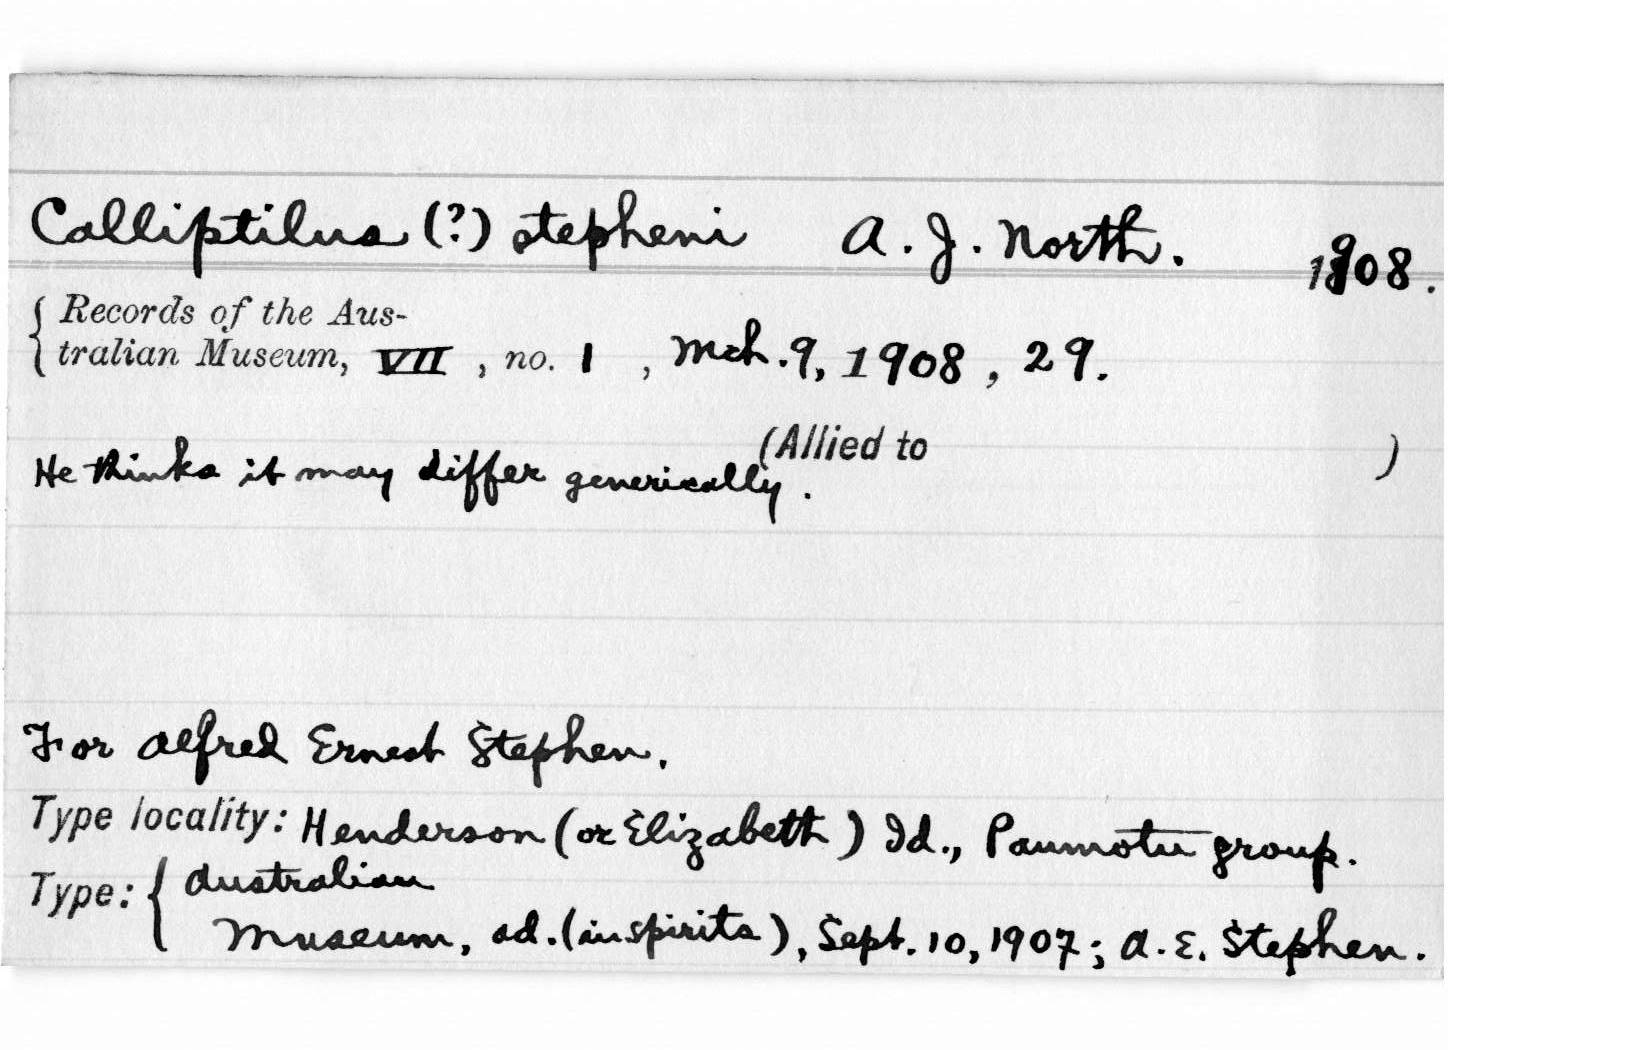 Calliptilus (?) stepheni A. J. North. 1908.
{ Records of the Aus-
tralian Museum, VII , no. 1 , Mch. 9, 1908 , 29.
(Allied to )
He thinks it may differ generically .
For Alfred Ernest Stephen.
Type locality: Henderson (or Elizabeth) Id., Paumotu group.
Type: { Australian
Museum, ad. (in spirits), Sept. 10, 1907; A. E. Stephen.